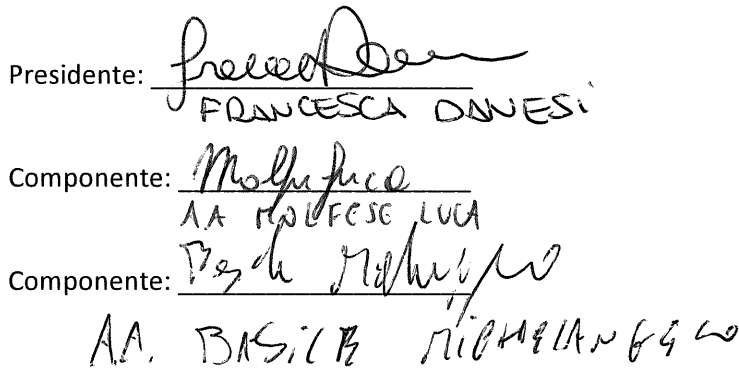 Presidente:
FRANCESCA DANESI
Componente: Molfese Luca
AA MOLFESE LUCA
Componente:
AA. BASILE MICHELANGELO